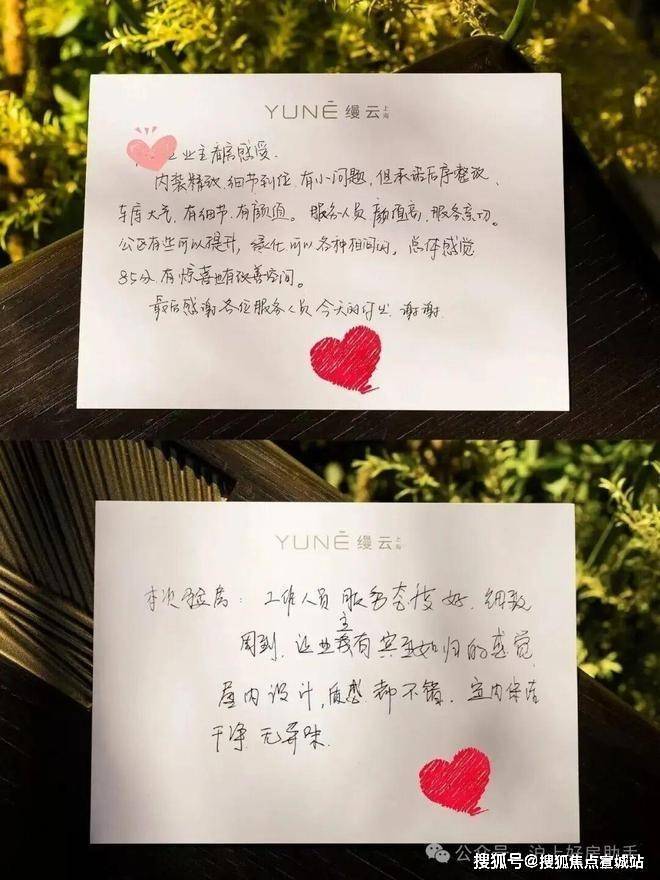 YUNÉ 缦云 上海
业主看房感受.
内装精致、细节到位、有小问题，但承诺后序整改、
车库大气、有细节、有颜值。服务人员颜值高、服务亲切。
公区有些可以提升，绿化可以各种相间的，总体感觉
85分有惊喜也有改善空间。
最后感谢各位服务人员今天的付出 谢谢
YUNÉ 缦云 上海
本次验房：工作人员服务态度好，细致
周到，让业主我有宾至如归的感觉
屋内设计，质感都不错、室内保洁
干净 无异味.
公众号·沪上好房助手
搜狐号@搜狐焦点宣城站